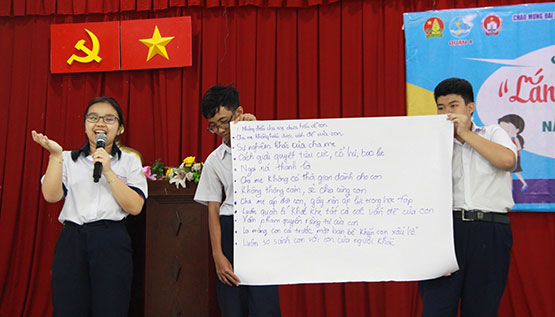 CHÀO MỪNG ĐẠI
"Lắn
NĂ
Những điều cha mẹ chưa hiểu về con
Cha mẹ không hiểu được vấn đề của con
Sự nghiêm khắc của cha mẹ
Cách giải quyết tiêu cực, cổ hủ, bạo lực
Ngại nói thành lời
Cha mẹ không có thời gian dành cho con
Không thông cảm, sẻ chia cùng con
Cha mẹ áp đặt con, gây nên áp lực trong học tập
Luôn quan lí khắt khe tất cả các vấn đề của con
Xâm phạm quyền riêng tư của con
La mắng con cái trước mặt bạn bè khiến con xấu hổ
Luôn so sánh con với con của người khác